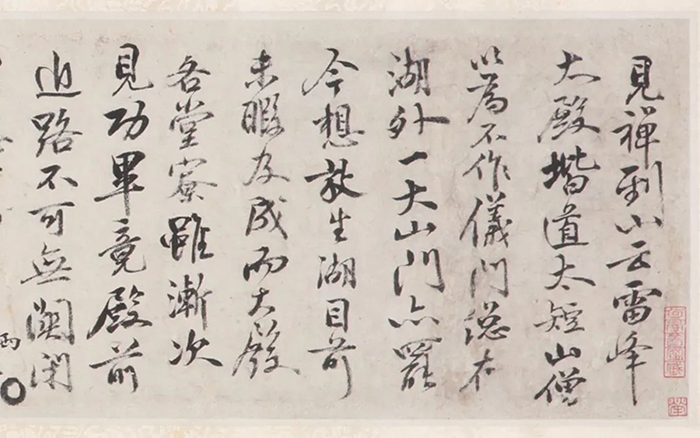 見禪到山云雷峰
大殿堦道太短山僧
以為不作儀門總在
湖外一大山門亦罷
今想放生湖目前
未暇及成而大殿
各堂寮雖漸次
見功畢竟殿前
追路不可無闌閑